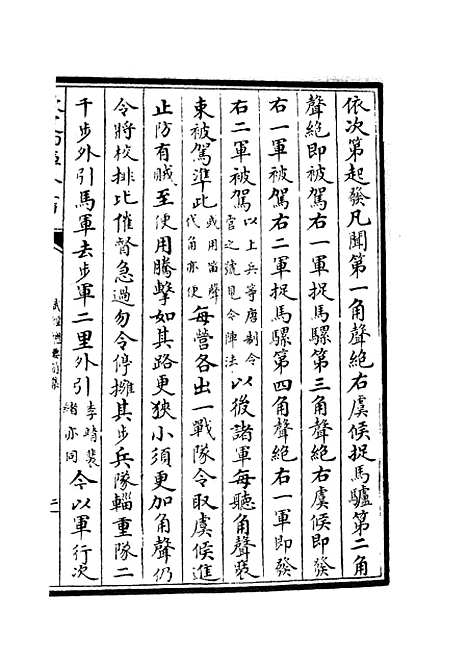 依次第起發凡聞第一角聲絕右虞候捉馬驢第二角
聲絕即被駕右一軍捉馬騾第三角聲絕右虞候即發
右一軍被駕右二軍捉馬騾第四角聲絕右一軍即發
右二軍被駕以上兵等唐制令官之號見令陣法以後諸軍每聽角聲裝
束被駕準此或用笛聲代角亦便每營各出一戰隊令取虞候進
止防有賊至便用騰擊如其路更狹小須更加角聲仍
令將校排比催督急過勿令停擁其步兵隊輜重隊二
千步外引馬軍去步軍二里外引李靖裴緒亦同今以軍行次
武經總要前集